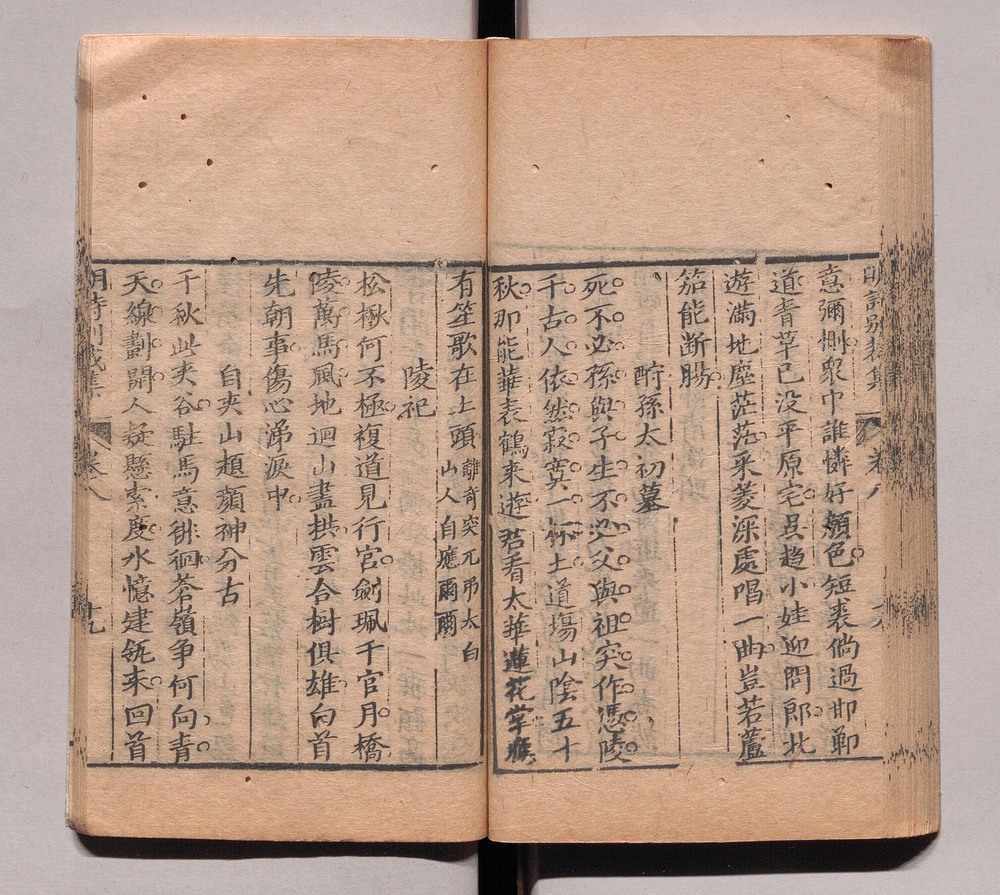 明詩别裁集 卷八
意彌惻衆中誰憐好顔色短裘倘過邯鄲
道青草已没平原宅呉趋小娃迎問郎北
遊滿地塵茫茫采菱深處唱一曲豈若蘆
笳能断腸
酹孫太初墓
死不必孫與子生不必父與祖突作憑陵
千古人依然寂寞一抔土道塲山陰五十
秋那能華表鶴來遊君看太華蓮花掌應
有笙歌在上頭
離奇突兀弔太白
山人自應爾爾
陵祀
松楸何不極複道見行宫劍珮千官月橋
陵萬馬風地迴山盡拱雲合樹俱雄向首
先朝事傷心涕淚中
自夾山趨顔神分古
千秋此夾谷駐馬意徘徊蒼嶺争何向青
天線劃開人疑懸索度水憶建瓴来回首
明詩別裁集 卷八 十九